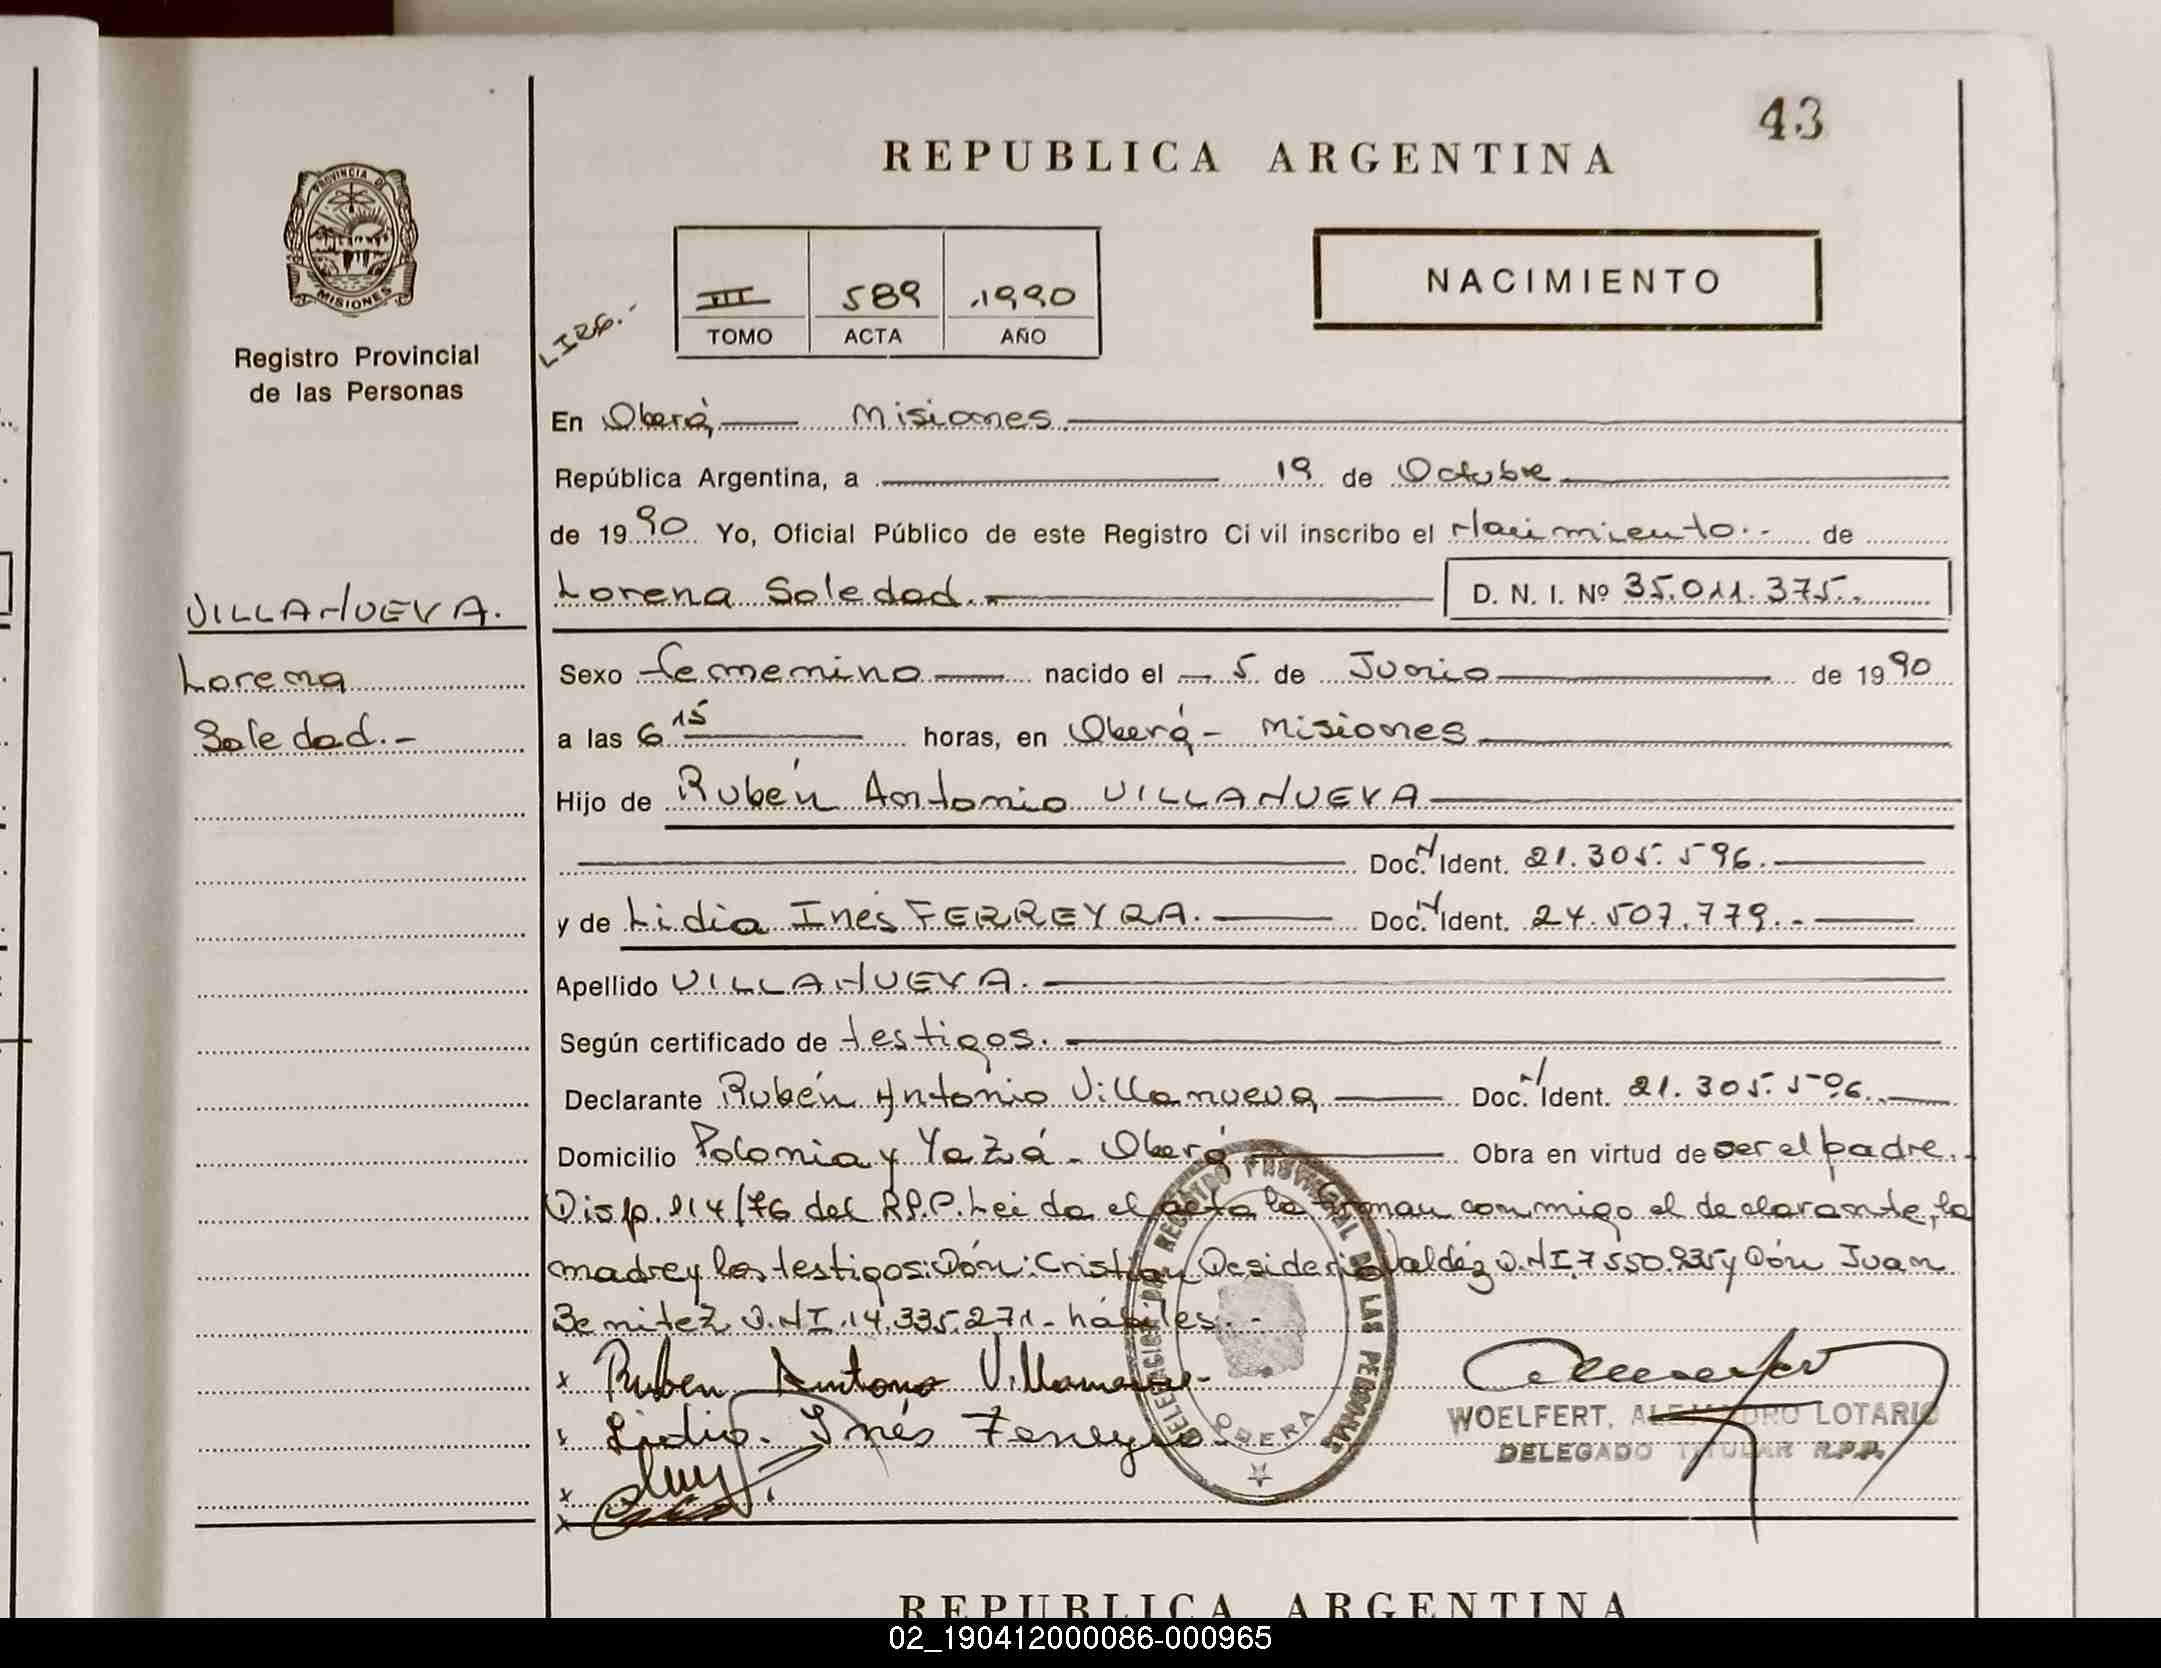 43
REPUBLICA ARGENTINA
PROVINCIA DE
MISIONES
Registro Provincial
de las Personas
III 589 1990
TOMO ACTA AÑO
NACIMIENTO
En Oberá Misiones.
República Argentina, a 19 de Octubre
de 1990 Yo, Oficial Público de este Registro Civil inscribo el Nacimiento.- de
VILLANUEVA.
Lorena
Soledad.-
Lorena Soledad.- D. N. I. Nº 35.011.375.-
Sexo femenino nacido el 5 de Junio de 1990
a las 6 15 horas, en Oberá - Misiones
Hijo de Rubén Antonio VILLANUEVA
Doc. N Ident. 21.305.596.
y de Lidia Inés FERREYRA. Doc. N Ident. 24.507.779.-
Apellido VILLANUEVA.
Según certificado de testigos.
Declarante Rubén Antonio Villanueva Doc. N Ident. 21.305.596.
Domicilio Polonia y Yazá - Oberá Obra en virtud de ser el padre.
Disp. 114/76 del R.P.P. Leida el acta la firman conmigo el declarante, la
madre y los testigos: Dón: Cristian Desiderio Valdéz D.NI. 7550.935 y Dón Juan
Benitez D.NI. 14.335.271 - hábiles.-
x Ruben Antonio Villanueva
x Lidia Inés Ferreyra
x
x
DELEGACION DEL REGISTRO PROVINCIAL DE LAS PERSONAS
OBERA
WOELFERT, ALEJANDRO LOTARIO
DELEGADO TITULAR R.P.P.
REPUBLICA ARGENTINA
02_190412000086-000965